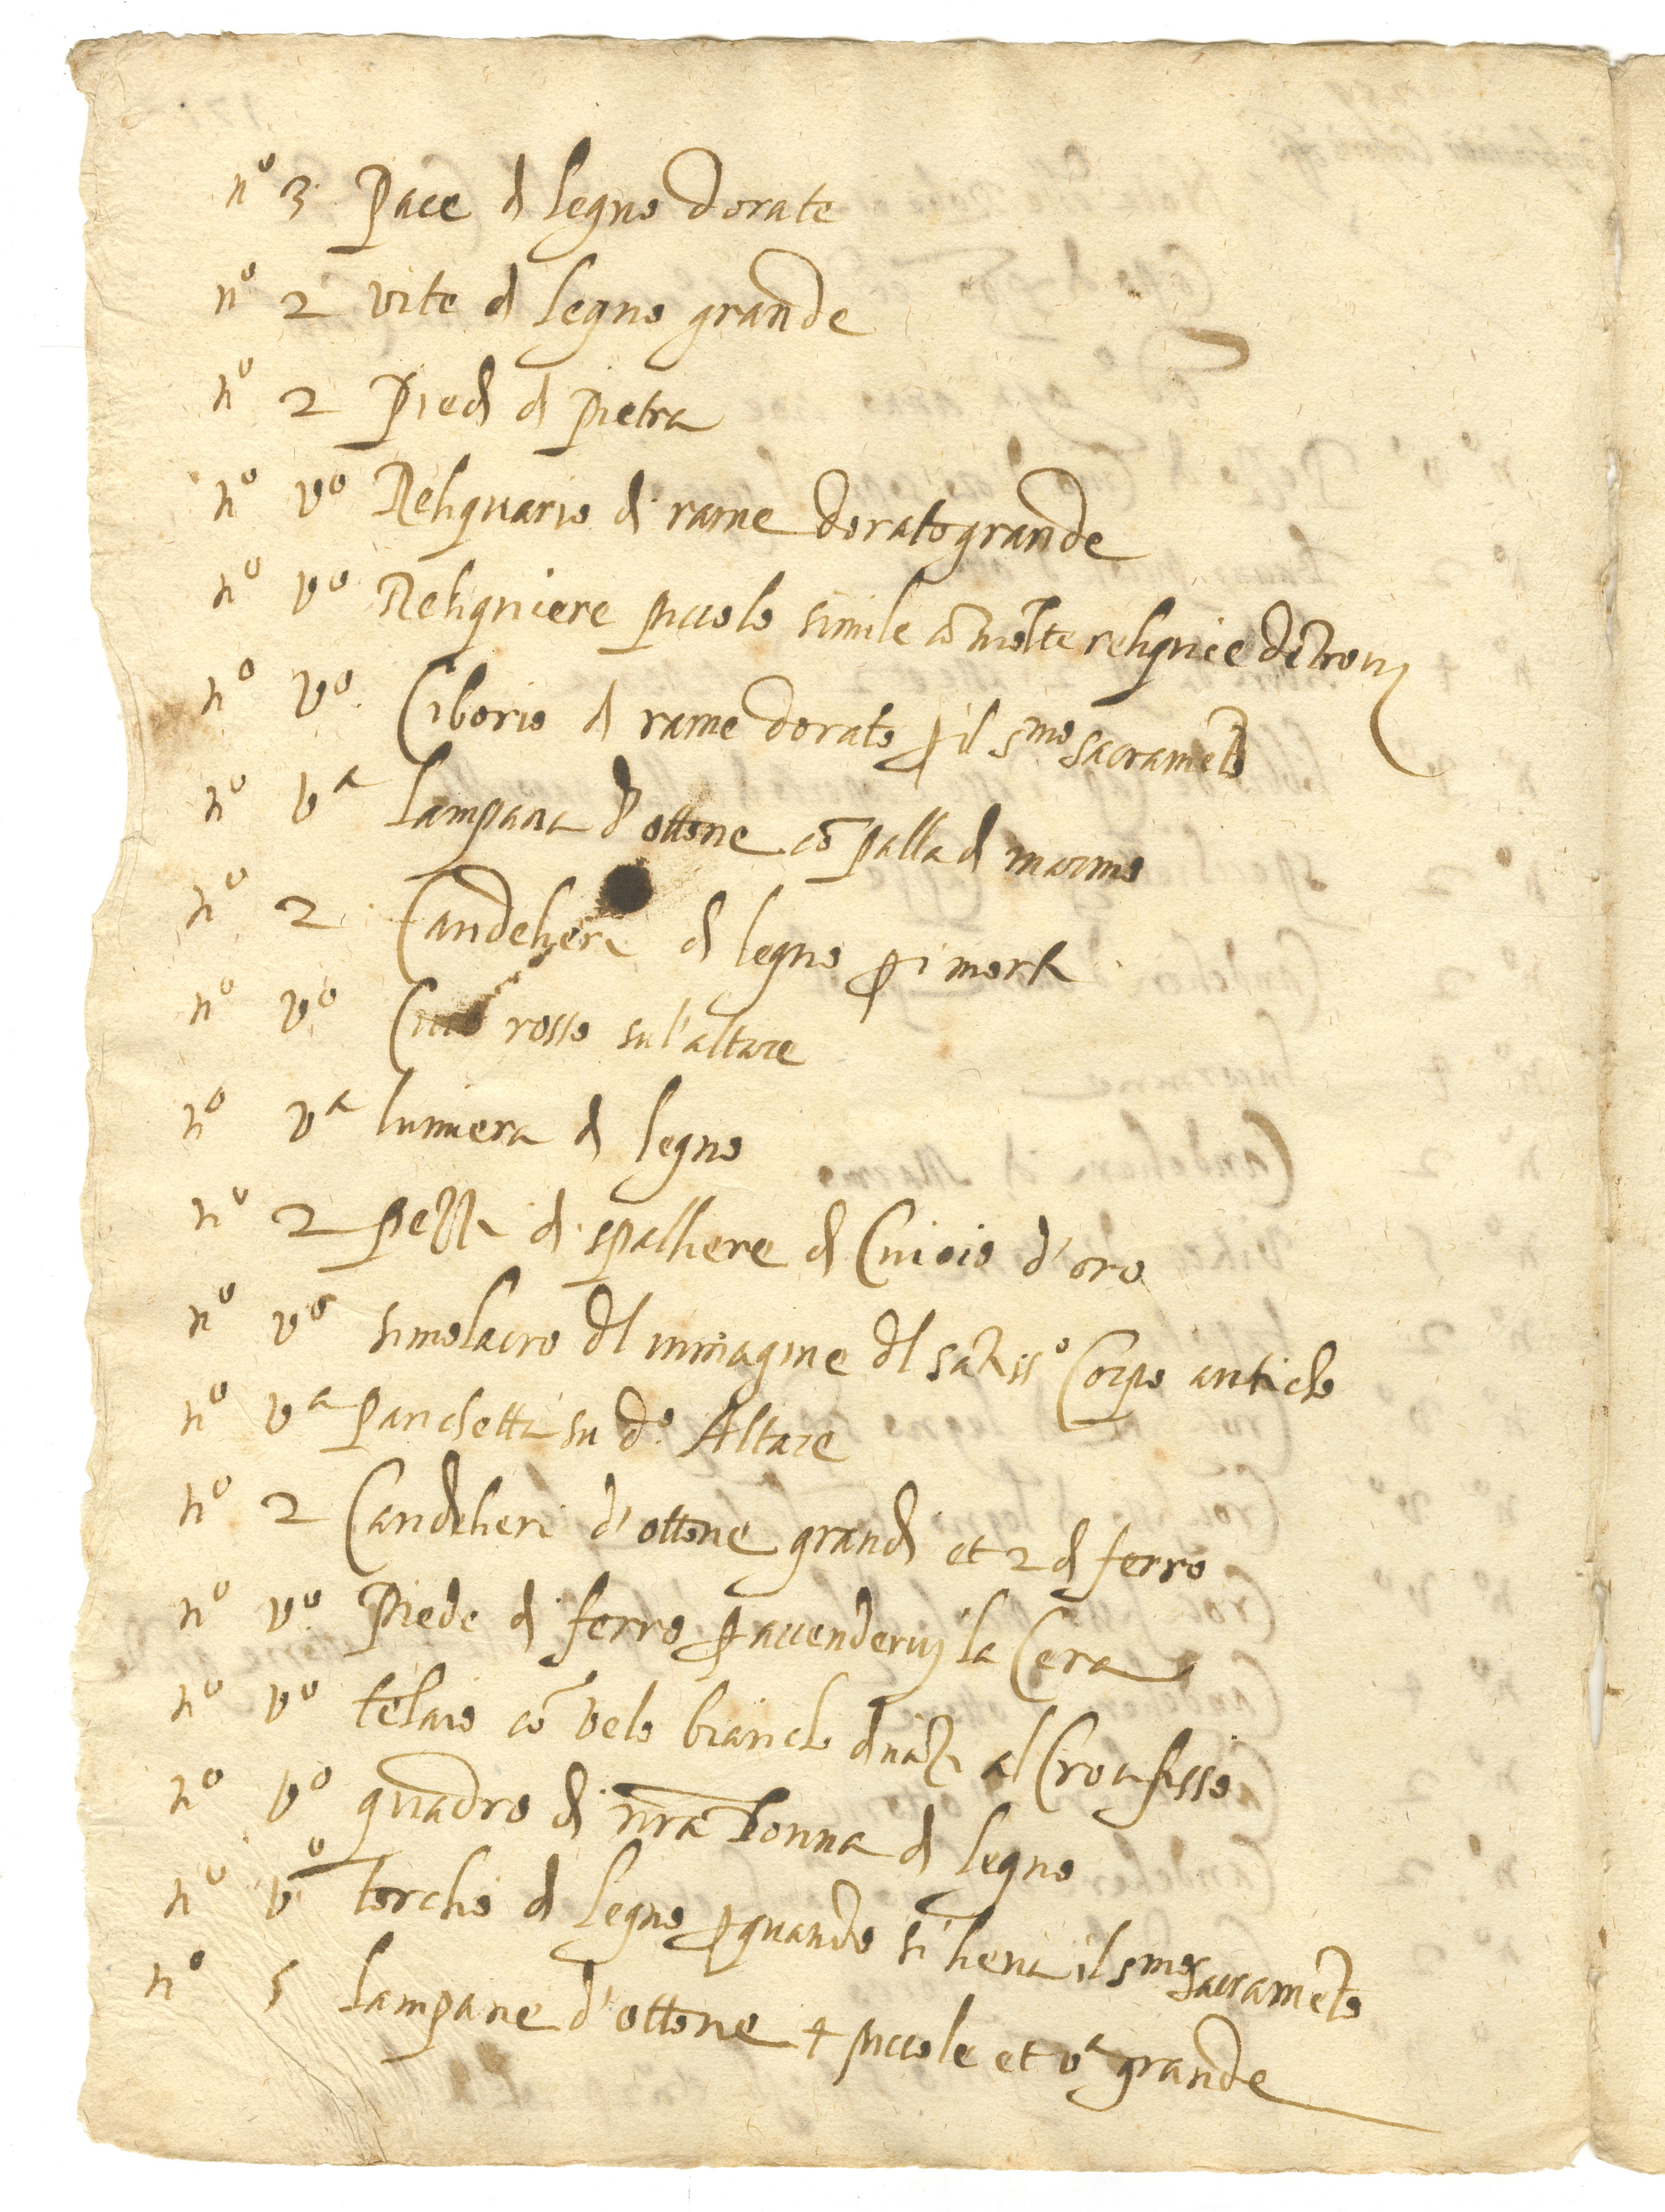 nº 3 Pace di legno dorate
nº 2 vite di legno grande
nº 2 Piedi di pietra
nº vº Reliquario di rame dorato grande
nº vº Reliquiere piccolo simile cō molte reliquie dētrovi
nº vº Ciborio di rame dorato ꝑ il Smo Sacramēto
nº vª Lampana d'ottone cō palla di marmo
nº 2 Candelieri di legno ꝑ i morti
nº vº rosso sul'altare
nº vª lumiera di legno
nº 2 pezzi di spalliere di Cuioio d'oro
nº vº simolacro dl immagine dl sātissº Corpo anticho
nº vª Panchetta su dº Altare
nº 2 Candelieri d'ottone grandi et 2 di ferro
nº vº Piede di ferro ꝑ accendervi la Cera
nº vº telaio cō velo biancho dināzi al Crocifisso
nº vº quadro di nr̄a Donna di legno
nº vº torchio di legno ꝑ quando si lieva il Smo Sacramēto
nº 5 Lampane d'ottone 4 piccole et vª grande